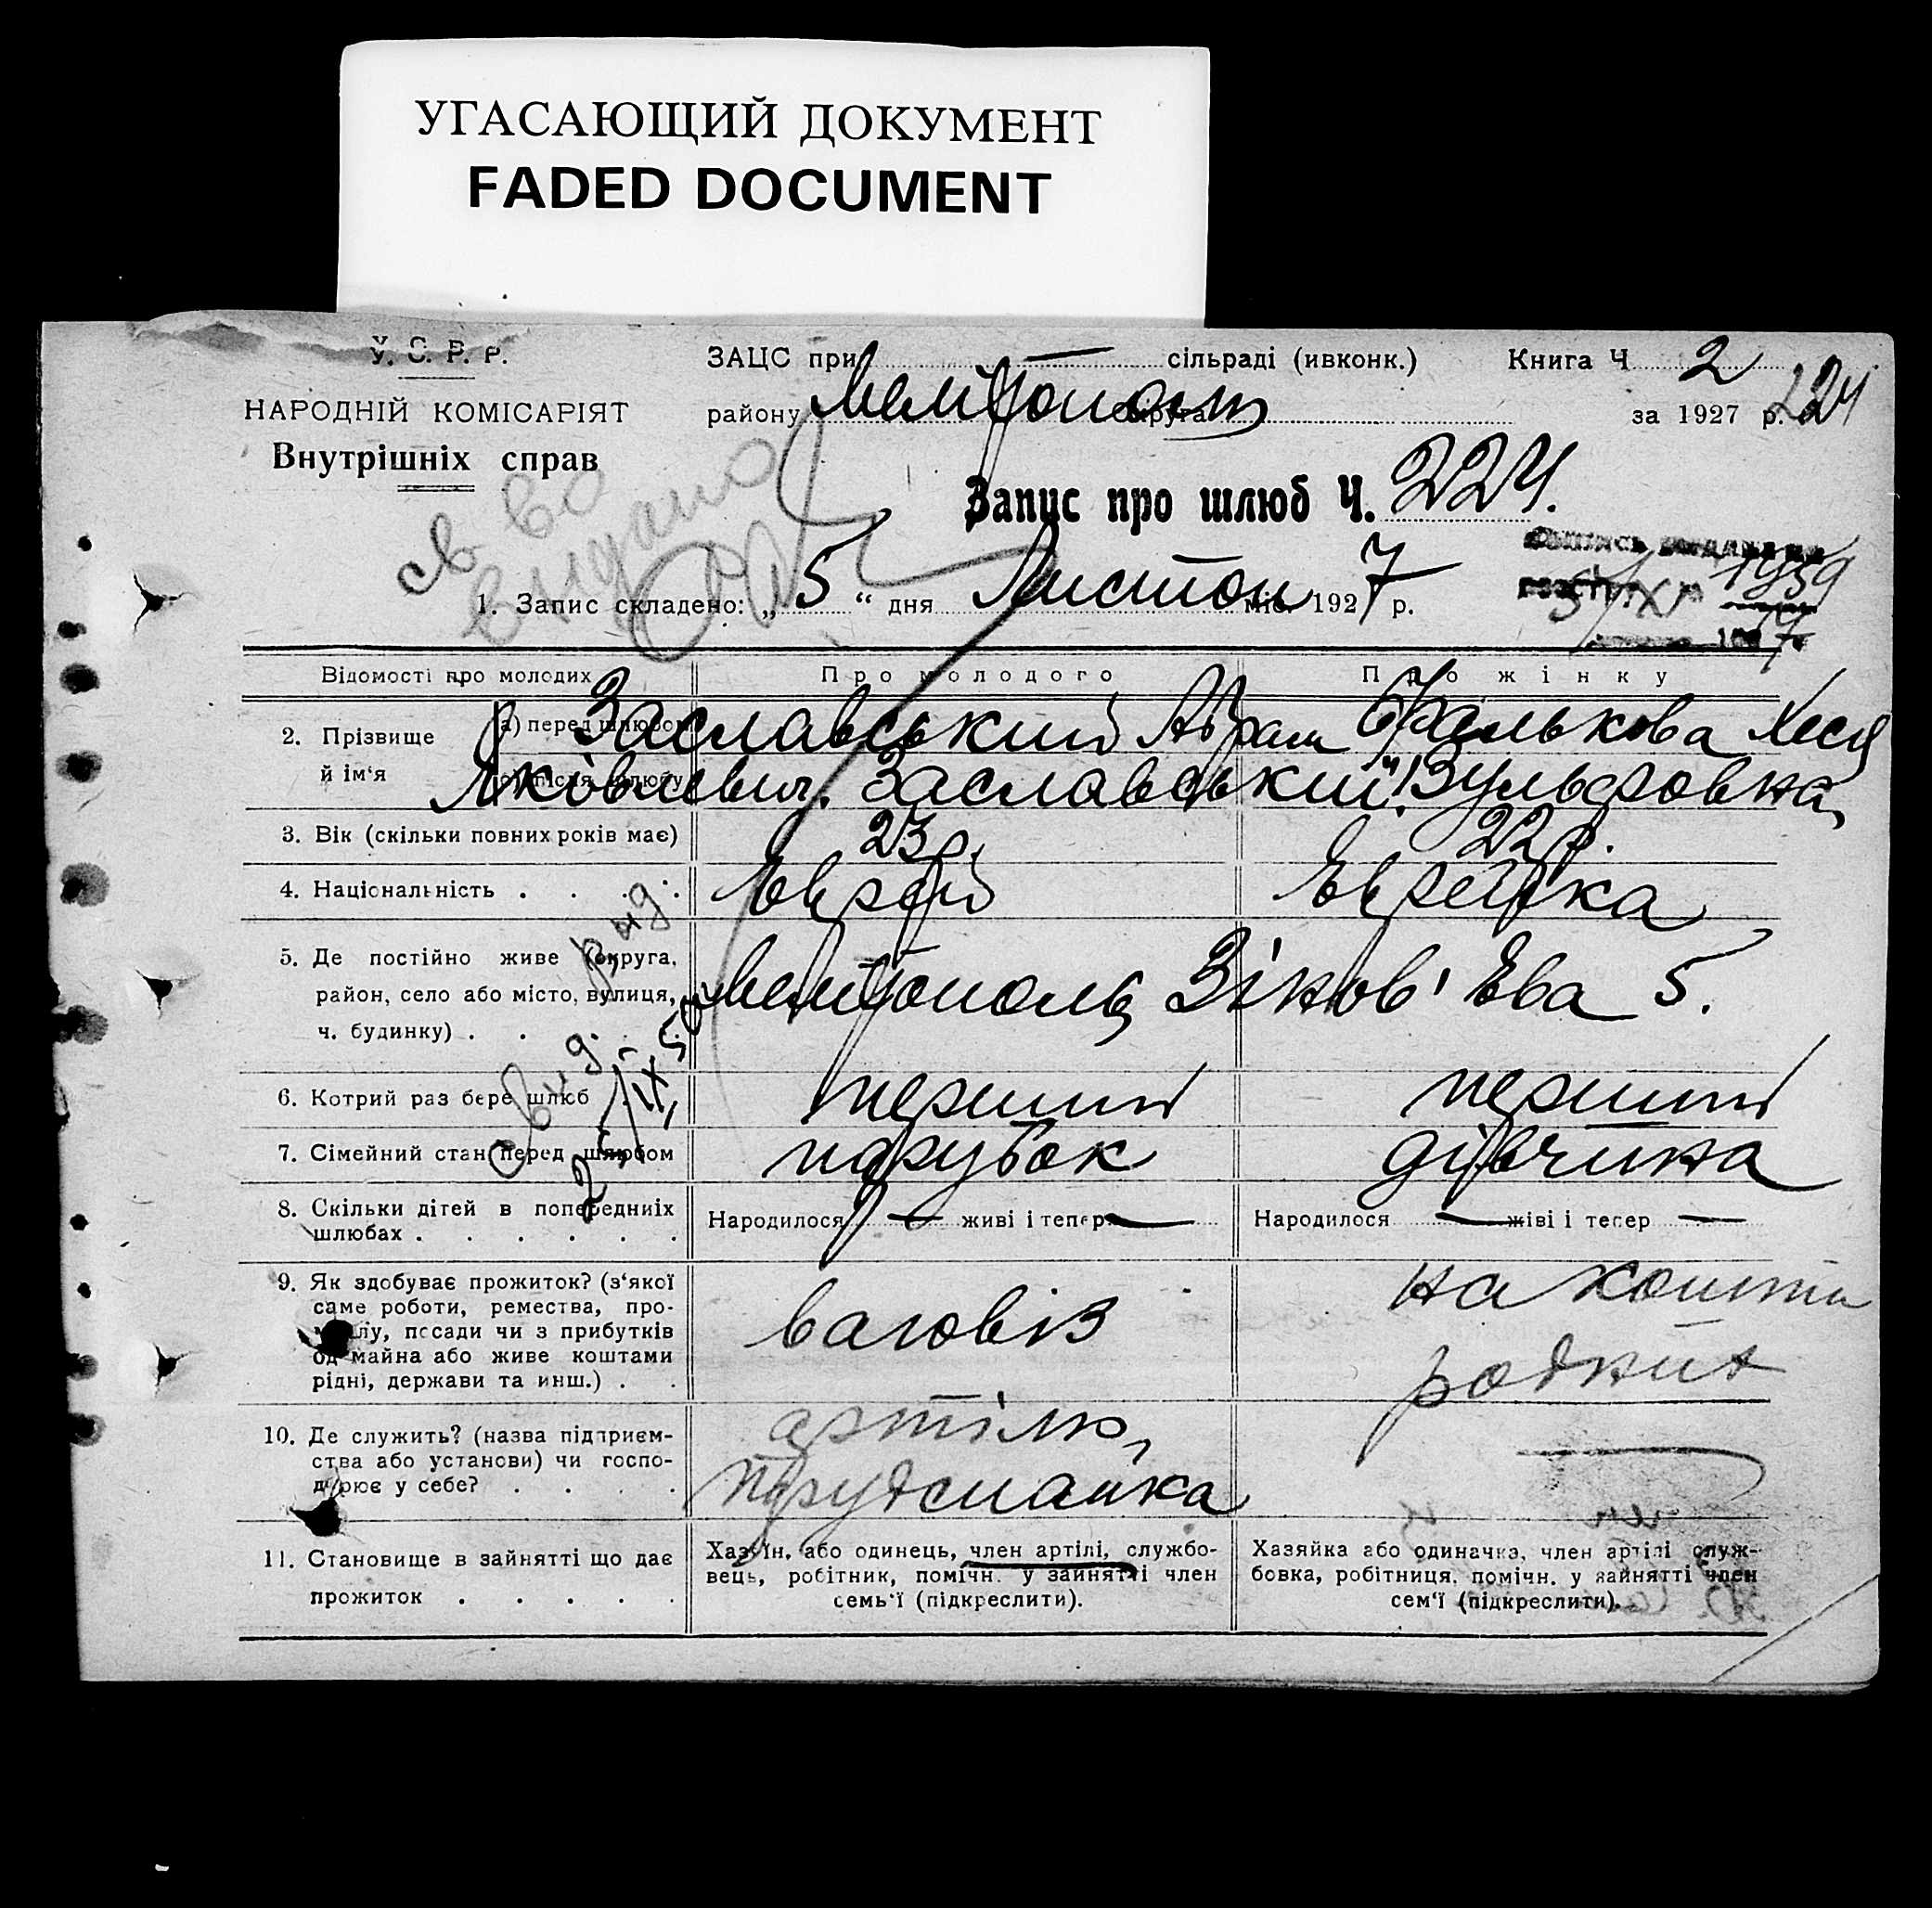 УГАСАЮЩИЙ ДОКУМЕНТ
FADED DOCUMENT
У. С. Р. Р.
НАРОДНІЙ КОМІСАРІЯТ
Внутрішніх справ
ЗАЦС при — сільраді (ивконк.) Книга Ч 2
району Мелітопол округа за 1927 р. 224
Запис про шлюб Ч. 224.
видано
1. Запис складено: „ 5 “ дня Листоп міс. 1927 р.
5/XI 1939
Відомості про молодих Про молодого Про жінку
2. Прізвище й ім‘я а) перед шлюбом Заславський Абрам Фалькова Хеся
Яковлевич. Заславський Вульфовна
3. Вік (скільки повних років має) 23 р. 22 р.
4. Національність . . . . Еврей Еврейка
5. Де постійно живе (округа,
район, село або місто, вулиця,
ч. будинку) . Мелітополь 5.
6. Котрий раз бере шлюб перший перший
7. Сімейний стан перед шлюбом парубок дівчина
8. Скільки дітей в попередніх
шлюбах . . . . . . Народилося — живі і тепер — Народилося — живі і тепер —
9. Як здобуває прожиток? (з‘якої
саме роботи, ремества, про-
мислу, посади чи з прибутків
од майна або живе коштами
рідні, держави та инш.) . . ваговіз на кошти
10. Де служить? (назва підприєм-
ства або установи) чи госпо-
дарює у себе? . . . . артіль
11. Становище в зайнятті що дає
прожиток . . . . .
Хазяїн, або одинець, член артілі, службо-
вець, робітник, помічн. у зайнятті член
семь‘ї (підкреслити).
Хазяйка або одиначка, член артілі служ-
бовка, робітниця, помічн. у зайнятті член
сем‘ї (підкреслити).